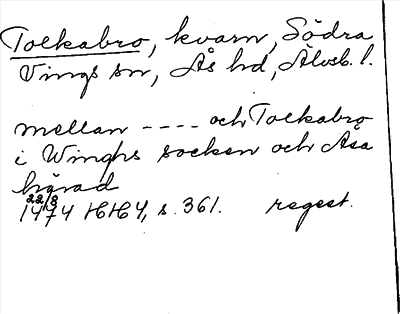 Tolkabro, kvarn, Södra
Vings sn, Ås hd, Älvsb. l.
mellan ---- och Tolkabro
i Winghs socken och Åsa
härad
22/8
1474 HH4, s. 361. regest.